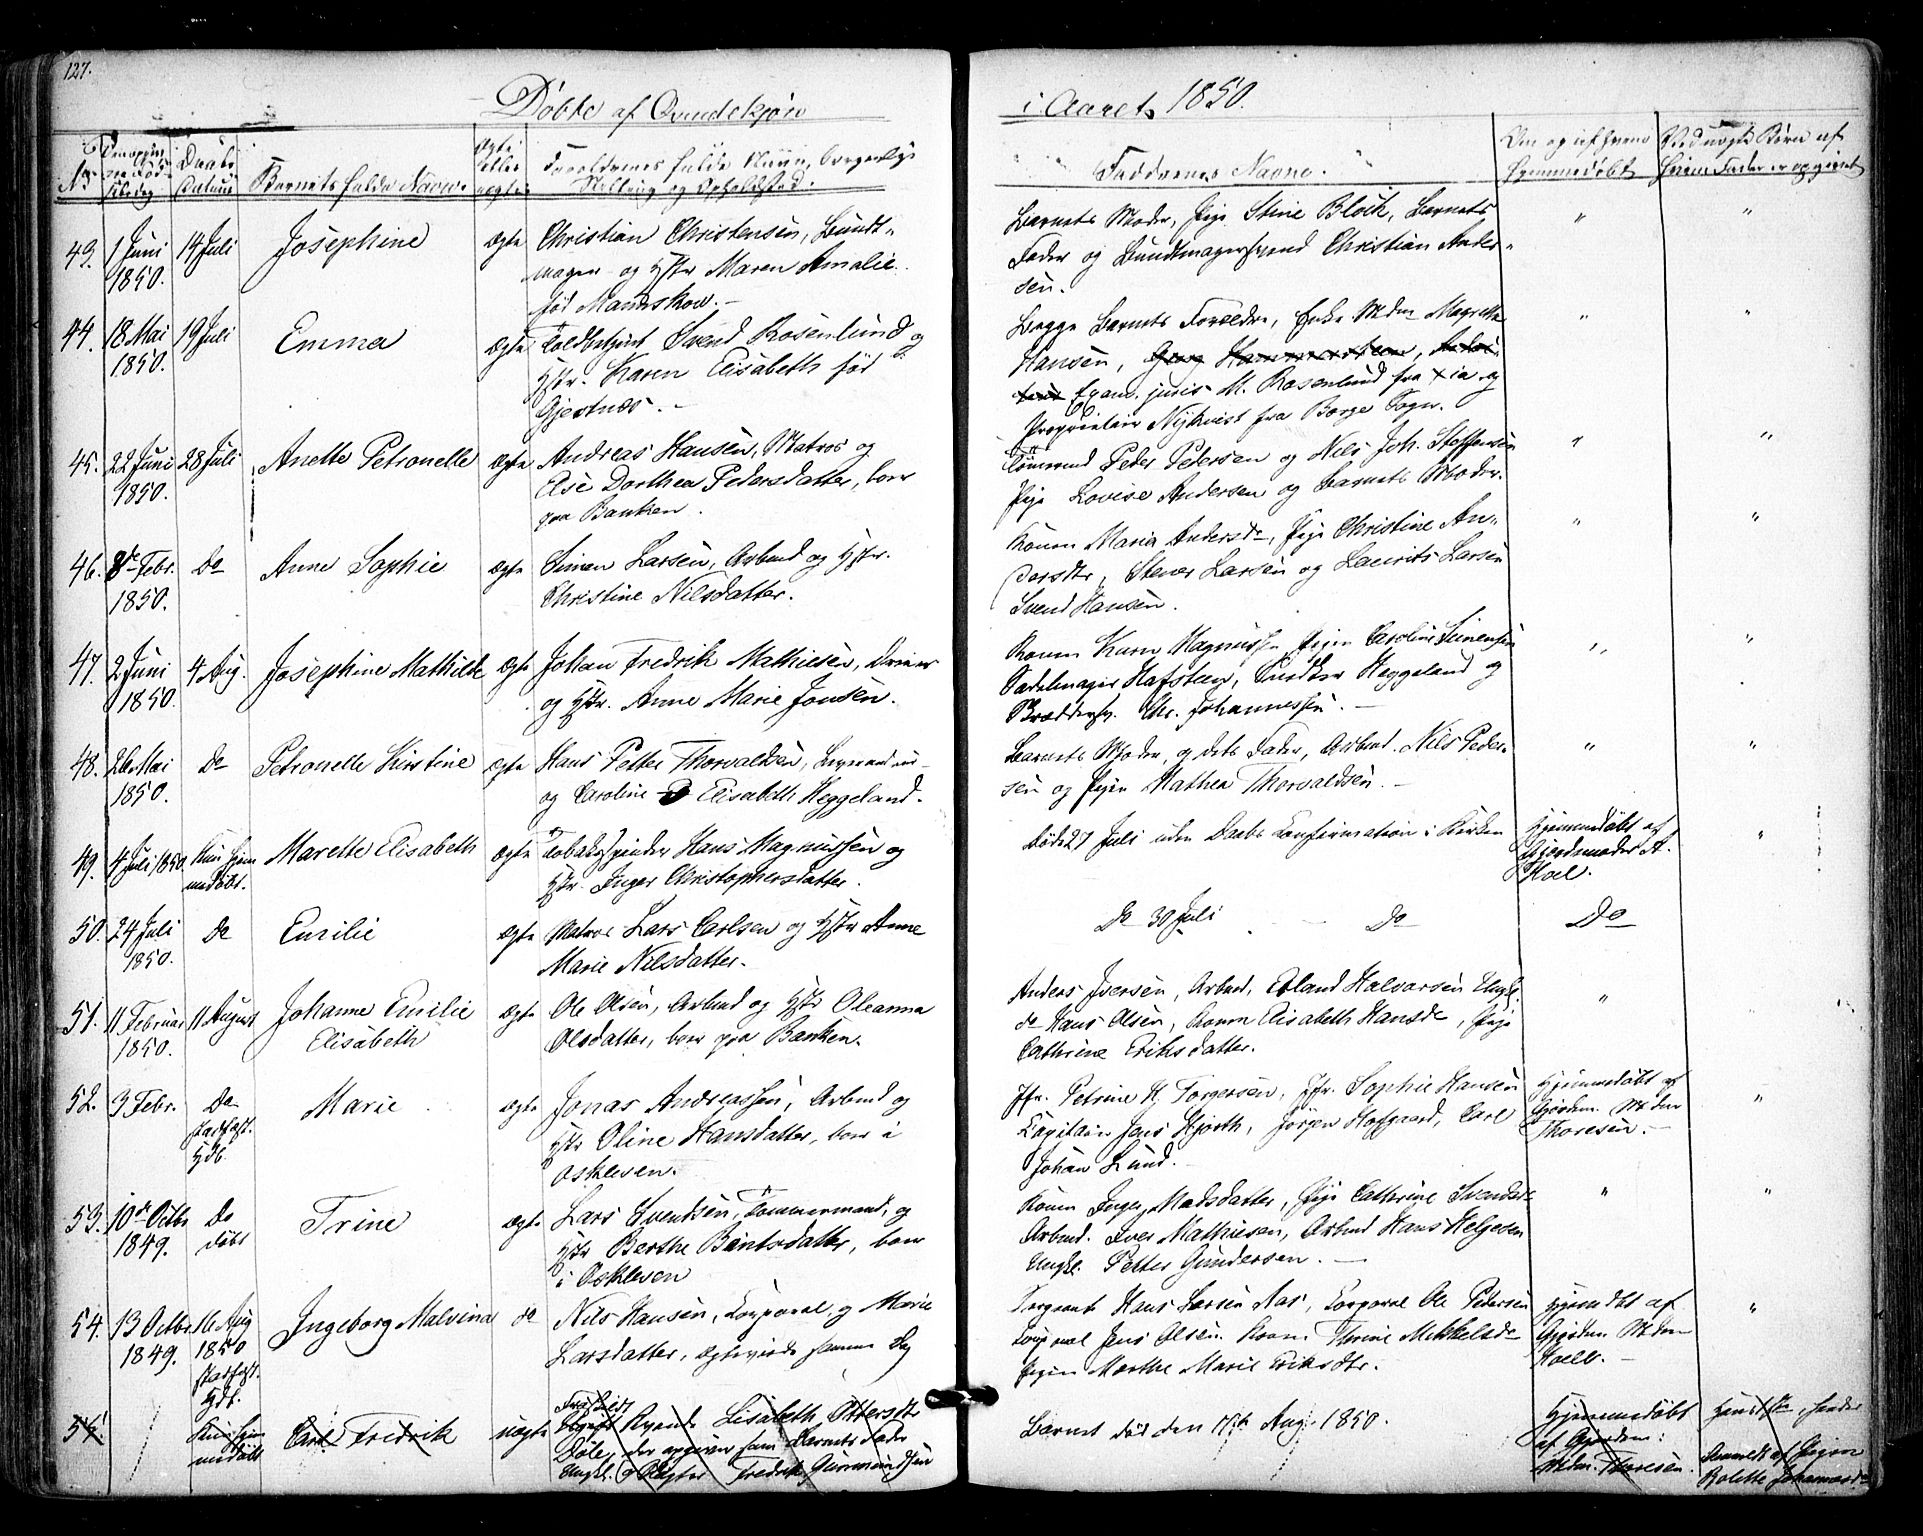 127.
Döbte af Qvindekjøn
i Aaret 1850.
No
Daabs Datum
Barnets fulde Navn.
Ægte eller uægte
Forældrenes fulde Navn, borgerlige
Stilling og Opholdsted.
Faddernes Navne.
Om og af hvem
hjemmedøbt
Ved uægte Børn af
hvem Fader er opgivet
43. 1 Juni 1850. 14 Juli Josephine ægte Christian Christensen, Bundt-
mager og Hstr Maren Amalie
fød Manskow.
Barnets Moder, Pige Stine Block, Barnets
Fader og Bundtmagersvend Christian Ander-
sen.
44. 18 Mai 1850. 19 Juli Emma ægte Toldbetjent Svend Rosenlund og
Hstr. Karen Elisabeth fød
Gjestnæs.
Begge Barnets Forældre, Enke Mdm Magrethe
Hansen, Georg Hammersteen,
Exam. juris M. Rosenlund fra Xia og
Proprietair Nykvist fra Borge Sogn.
45. 22 Juni 1850. 28 Juli Anette Petronelle ægte Andreas Hansen, Matros og
Else Dorthea Pedersdatter, boer
paa Banken.
Tömmermd Peder Pedersen og Nils Joh. Stoffensen
Pige Lovise Andersen og Barnets Moder.
46. 8de Febr. 1850. Do Anne Sophie ægte Simen Larsen, Arbmd og Hstr.
Christine Nilsdatter.
Konen Maria Andersdr, Pige Christine An-
dersdtr, Stener Larsen og Laurits Larsen
Svend Hansen.
47. 2 Juni 1850. 4 Aug. Josephine Mathilde ægte Johan Fredrik Mathiesen, Dreier
og Hstr. Anne Marie Jonsen.
Konen Karen Magnussen Pigen Caroline Simensen
Sadelmager Hafsteen, Snedker Heggeland og
Skræddersv. Chr. Johannessen.
48. 26 Mai 1850. Do Petronelle Kirstine ægte Hans Petter Thorvaldsen,
og Caroline Elisabeth Heggeland.
Barnets Moder, og dets Fader, Arbmd. Nils Peder-
sen og Pigen Mathea Thorvaldsen.
49. 4 Juli 1850. Kun hjem
medøbt. Marette Elisabeth ægte Tobakspinder Hans Magnussen og
Hstr. Inger Christophersdatter.
Døde 27 Juli uden Daabs Confirmation i Kirken
Hjemmedøbt af
Gjordmoder A.
Hoel.
50. 24 Juli 1850. Do Emilie ægte Matros Lars Carlsen og Hstr Anne
Marie Nilsdatter.
Do 30 Juli Do Do
51. 11 Februar 1850. 11 August Johanne Emilie
Elisabeth ægte Ole Olsen, Arbmd og Hstr Oleanna
Olsdatter, boer paa Banken.
Anders Iversen, Arbmd, Erland Halvorsen Ungk.
do Hans Olsen, Konen Elisabeth Hansdr, Pige
Cathrine Eriksdatter.
52. 3 Febr. Do
stadfæst.
Hdb. Marie ægte Jonas Andreassen, Arbmd og
Hstr Oline Hansdatter, boer i
Oskleven.
Jfr. Petrine H. Torgersen, Jfr. Sophie Hansen
Capitain Jens Hjorth, Jörgen Hofgaard, Carl
Johan Lund.
Hjemmedøbt af
Gjordm. Mdm
Thoresen.
53. 10de Octbr 1849. Do
døbt Trine ægte Lars Svendsen, Tømmermand, og
Hstr Berthe Bentsdatter, boer
i Oskleven
Konen Inger Madsdatter, Pige Cathrine Svendsdr
Arbmd. Iver Mathiesen, Arbmd Hans Helgesen
Ungk. Petter Gundersen.
54. 13 Octbr. 1849. 16 Aug 1850
stadfæst.
Hdb. Ingeborg Malvina do Nils Hansen, Korporal, og Marie
Larsdatter, ægteviede samme Dag
Sergeant Hans Larsen Aas, Korporal Ole Petersen
Korporal Jens Olsen. Konen Thrine Mikkelsdr
Pigen Marthe Marie Eriksdtr.
Hjemdbt af
Gjordm. Mdm
Hoell.
55. Kun hjem
medøbt Carl Fredrik uægte Lisabeth Ottersdtr
der opgiver som Barnets Fader
Ungk. Fredrik Gunmundsen
Barnet død den 17de Aug. 1850.
Hjemmedøbt
af Gjordm:
Mdm. Thoresen.
Anmeldt af Pigen
Bolette Johannesdr